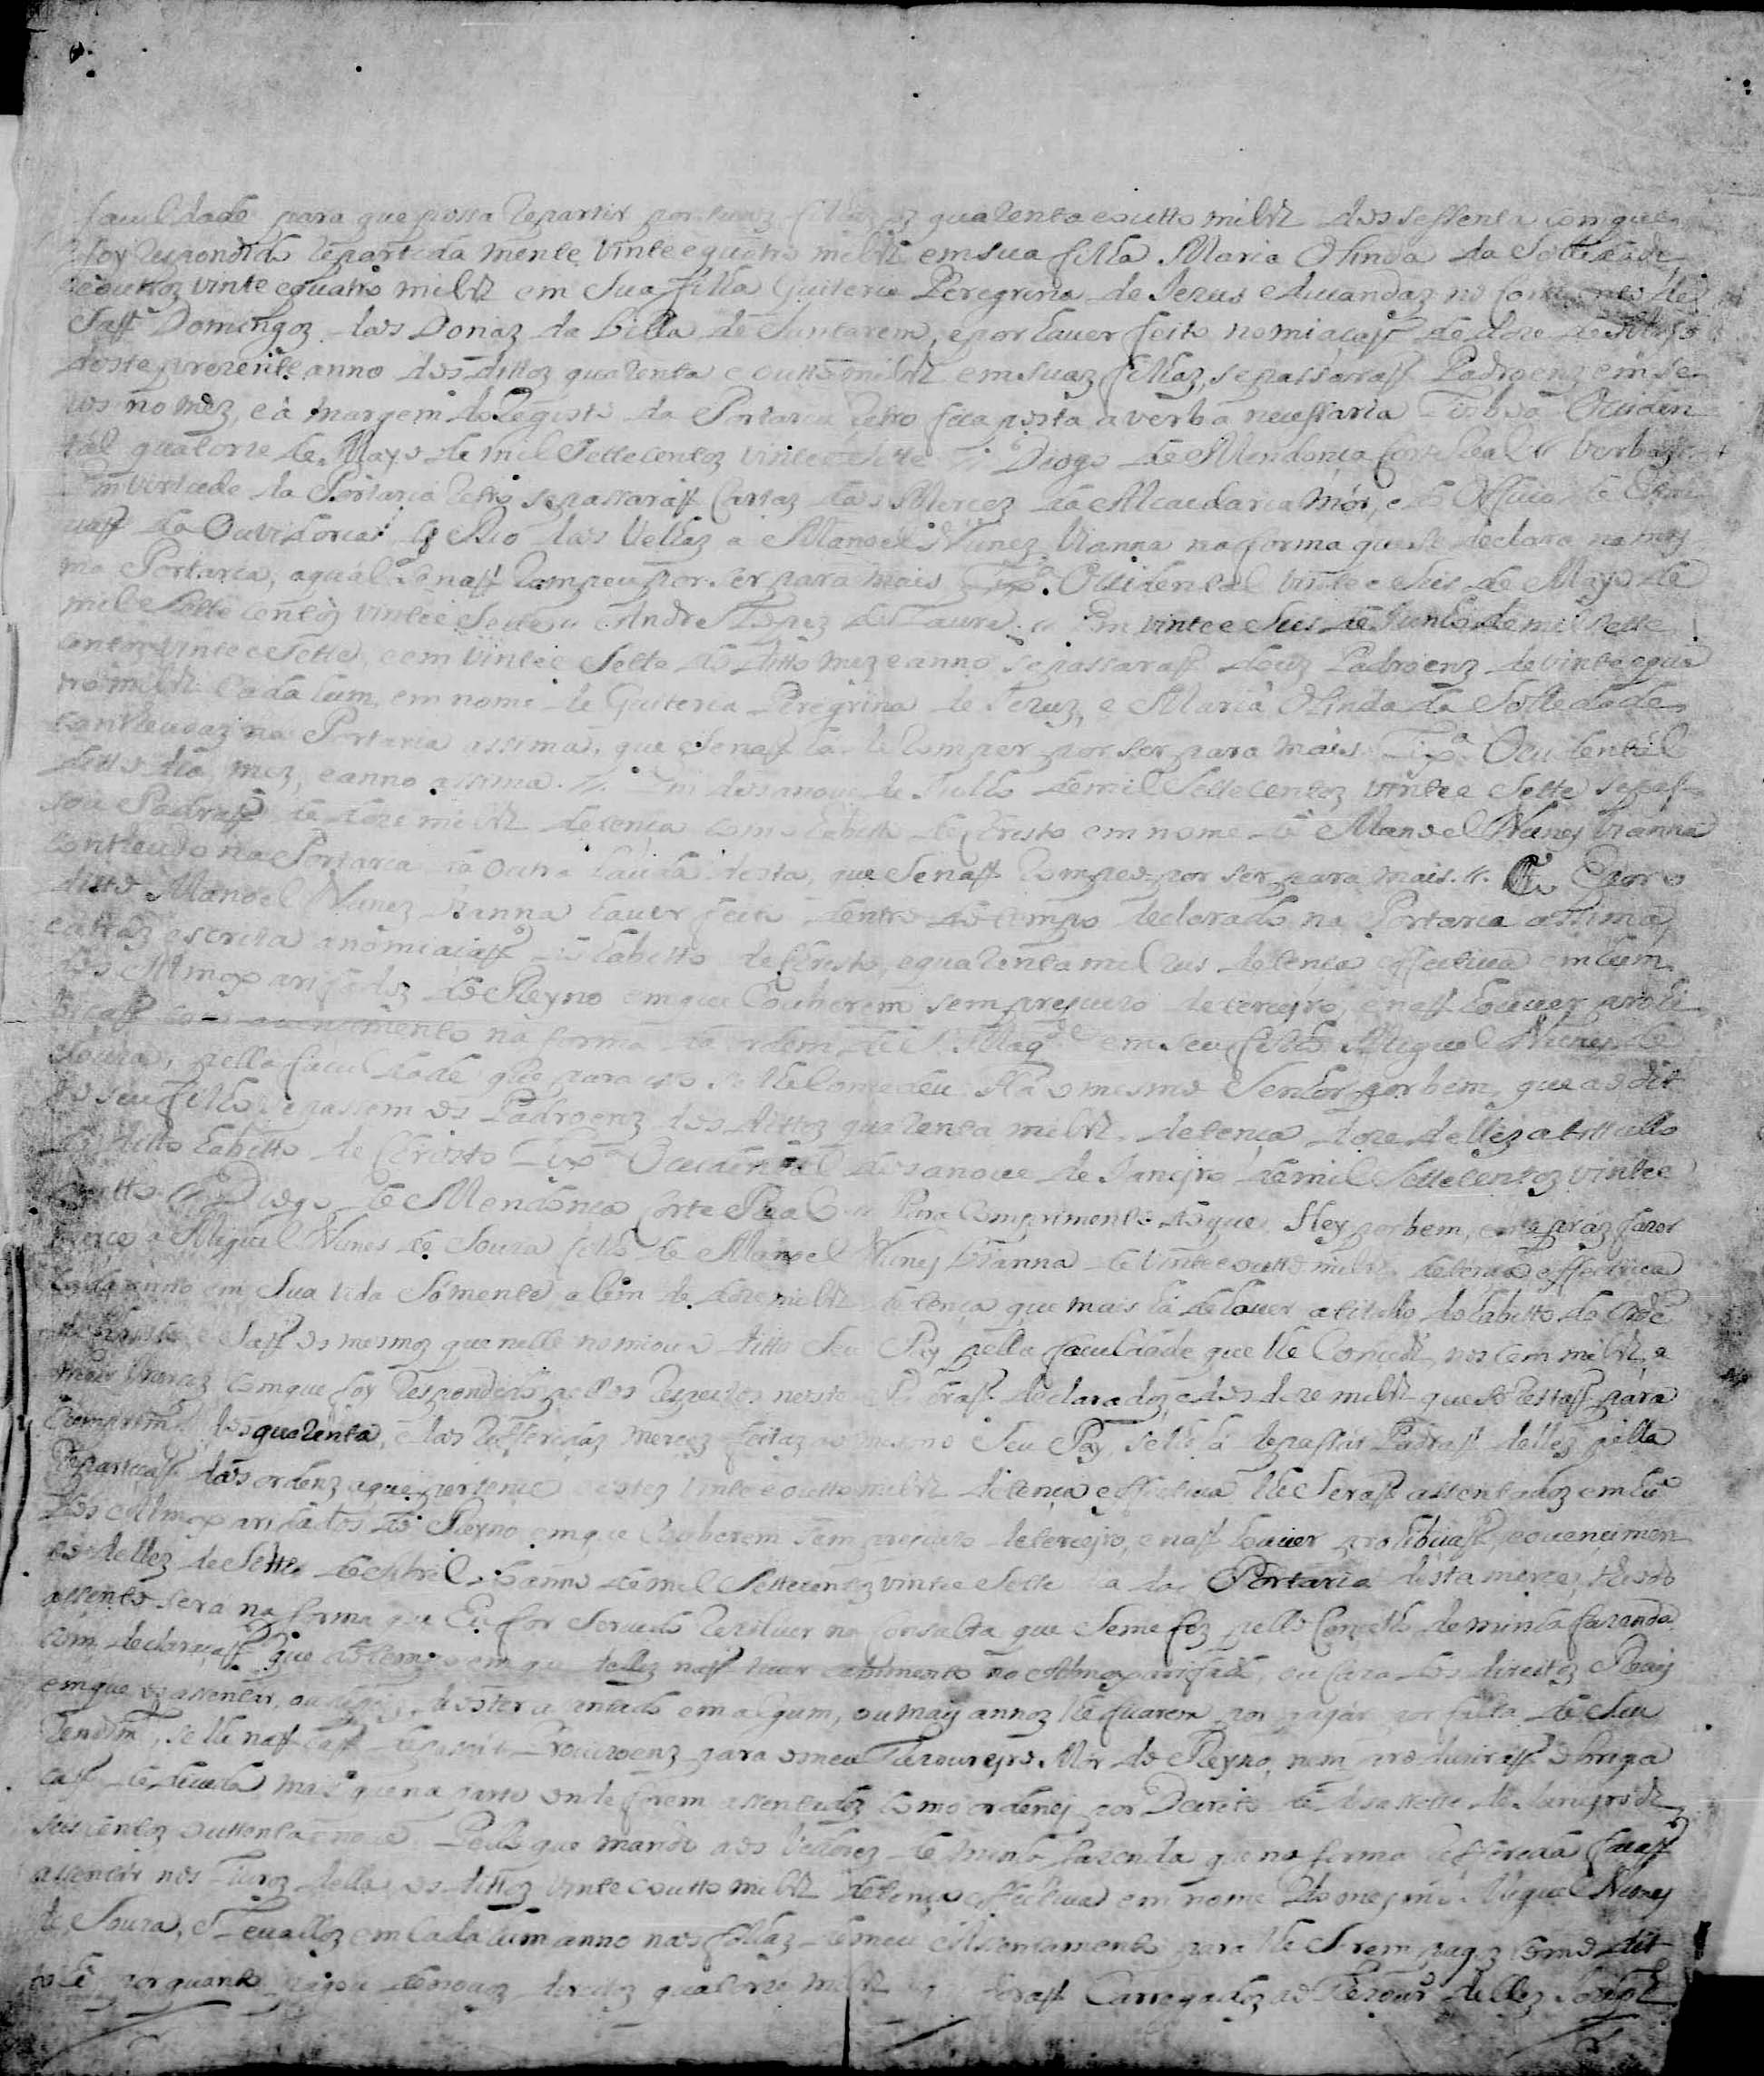 faculdade para que possa repartir por suas filhas os quarenta e outto mil rz dos sessenta com que
foy respondido repartida mente vinte e quatro mil rz em sua filha Maria Olinda da Solledade
e outtros vinte e quatro mil rz em sua filha Guiteria Peregrina de Jezus educandaz no de
Saõ Domingoz das Donaz da Villa de Santarem, e por haver feito nomiaçaõ de doze de
deste prezente anno dos dittoz quarenta e outto mil rz em suaz filhaz, se passaraõ Padroenz em se
us nomez, e à margem do Registo da Portaria retro fica posta a verba necessaria Lisboa Occiden
tal quatorze de Mayo de mil settecentoz vinte e sette Diogo de Mendonça Corte Real Verbas
Em virtude da Portaria retro se passaraõ Cartaz das Mercez da Alcaidaria mór, e do Officio de Escri
vaõ da Ouvidoria do Rio das Velhaz a Manoel Nunez Vianna na forma que se declara na mes
ma Portaria, a qual se naõ rompeu por ser para mais Lixª Occidental vinte e seis de Mayo de
mil e sette centoz vinte e sette Andre Lopez de Laure. Em vinte e seis de Junho de mil sette
centoz vinte e sette, e em vinte e sette do ditto mez e anno se passaraõ douz Padroenz de vinte e qua
tro mil rz cada hum, em nome de Guiteria Peregrina de Jezuz, e Maria Olinda da Solledade
contheudaz na Portaria assima, que se naõ ha de romper por ser para mais Lixª Occidental
ditto dia, mez, e anno assima. Em dezanove de Julho de mil settecentoz vinte e sette se pas
sou Padraõ de doze mil rz de tença como habitto de Christo em nome de Manoel Nunes Vianna
contheudo na Portaria na outra lauda desta, que se naõ rompeo por ser para mais. E por o
ditto Manoel Nunez Vianna haver feito dentro do tempo declarado na Portaria assima
e atraz escrita a nomiaçaõ do habitto de Christo, e quarenta mil reis de tença effectiva em hum
dos Almoxarifadoz do Reyno em que couberem sem prejuizo de terceyro, e naõ houver prohi
biçaõ com o vencimento na forma da ordem de S. Magᵈᵉ em seu filho Miguel Nunes de
Souza, pella faculdade que para isso se lhe concedeu Ha o mesmo Senhor por bem, que ao dit
to seu filho se passem os Padroenz dos dittoz quarenta mil rz. de tença doze dellez a tittullo
do ditto habitto de Christo Lixª Occidental dezanove de Janeyro de mil settecentoz vinte e
outto Diogo de Mendonça Corte Real Em comprimento do que Hey por bem, e me praz fazer
merce a Miguel Nunes de Souza filho de Manoel Nunes Vianna de vinte e outto mil rz de tença effectiva
cada anno em sua vida somente alem de doze mil rz de tença, que mais ha de haver a titulo do habitto da Ordẽ
de Christo, e saõ os mesmoz que nelle nomiou o ditto seu Pay pella faculdade que lhe concedi, nos cem mil rz, e
maiz mercez com que foy respondido pellos respeitos neste Padraõ declaradoz e dos doze mil rz que se restaõ para
comprimᵗᵒ dos quarenta, e das refferidaz mercez feitaz ao mesmo seu Pay, se lhe á de passar Padraõ dellez pella
repartiçaõ das ordenz a que pertence e estez vinte e outto mil rz de tença effectiva lhe seraõ assentadoz em hũ
dos Almoxarifados do Reyno em que couberem sem prejuizo de terceyro, e naõ houver prohibiçaõ, e o vencimen
to dellez de sette de Abril do anno de mil settecentoz vinte e sette dia da Portaria desta merce, thé
assento será na forma que Eu for servido rezolver na consulta que se me fez pello Concelho de minha fazenda
com declaraçaõ que ao tempo em que dellez naõ tiver cabimento no Almoxarifado, ou caza dos direitos Reais
em que os assentar, ou depois de os ter assentado em algum, ou mais annoz lhe ficarem por pagar por falta de seu
rendimᵗᵒ, se lhe naõ haõ de passar Provizoenz para o meu Thezoureyro Mór do Reyno, nem produziraõ obriga
çaõ de divida mais que na parte onde forem assentadoz como ordeney por Decreto de dezasette de Janeyro de
seiscentoz outtenta e nove Pello que mando aos Vedorez de minha fazenda que na forma refferida façaõ
assentar nos livroz della os dittoz vinte e outto mil rz de tença effectiva em nome do mesmo Miguel Nunes
de Souza, e levalloz em cada hum anno nas folhaz do meu Assentamento para lhe serem pagoz como dit
to hé por quanto pagou de novoz direitoz quatorze mil rz que foraõ Carregadoz ao Thezourᵒ dellez Joseph